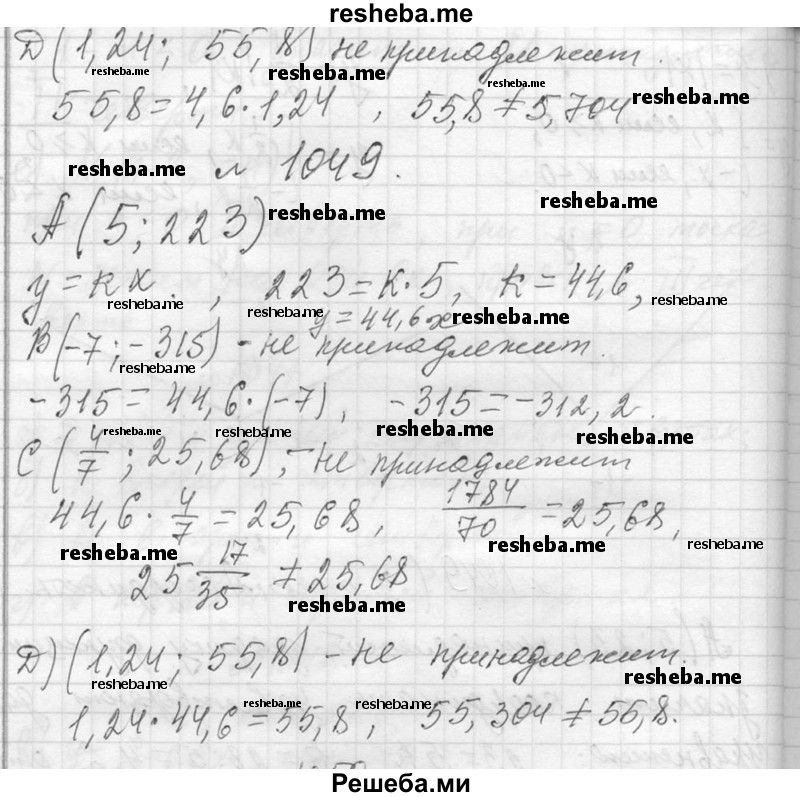 resheba.me
D (1,24; 55,8) не принадлежит.
resheba.me resheba.me resheba.me
55,8 = 4,6 · 1,24 , 55,8 ≠ 5,704 resheba.me
resheba.me № 1049.
A (5; 223) resheba.me resheba.me
y = kx , 223 = k · 5, k = 44,6,
resheba.me resheba.me resheba.me
y = 44,6x resheba.me
B (-7; -315) - не принадлежит.
resheba.me
-315 = 44,6 · (-7), -315 = -312,2.
resheba.me resheba.me resheba.me resheba.me
C (4/7; 25,68), - не принадлежит
44,6 · 4/7 = 25,68, 1784/70 = 25,68,
resheba.me resheba.me resheba.me
25 17/35 ≠ 25,68
resheba.me
D) (1,24; 55,8) - не принадлежит.
resheba.me resheba.me resheba.me resheba.me
1,24 · 44,6 = 55,8, 55,304 ≠ 55,8.
Решеба.ми